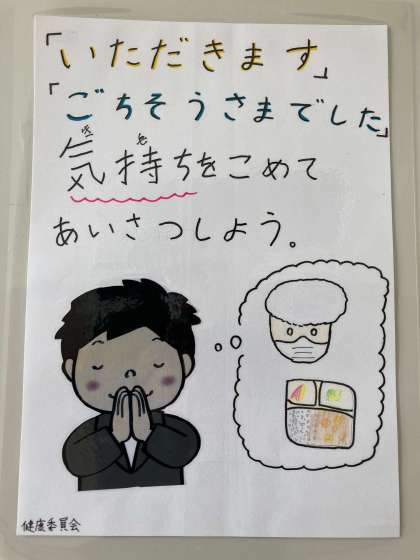 「いただきます」
「ごちそうさまでした」
気持ちをこめて
あいさつしよう。
健康委員会